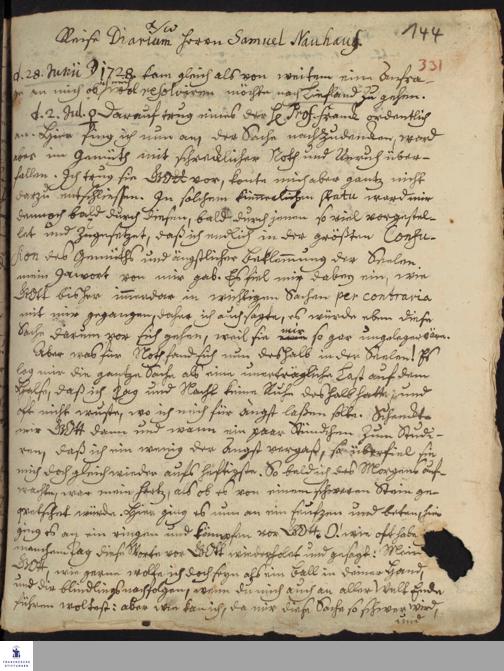 144
331
Reise Diarium Herrn Samuel Nauhaus.
d. 28. Junii 1728. kam gleich als von weitem eine Anfra-
ge an mich ob ich wol resolviren möchte nach Liefland zu gehen.
d. 2. Jul. Darauf trug eines der H. Prof. Franck ordentlich
an. Hier fing ich nun an, der Sache nachzudencken, ward
aber im Gemüth mit schrecklicher Noth und Unruh über-
fallen. Ich trug sie Gott vor, konte mich aber gantz nicht
darzu entschliessen. In solchem kümmerlichen statu ward mir
dennoch bald durch diesen, bald durch jenen so viel vorgestel-
let und zugesetzet, daß ich endlich in der größten Confu-
sion des Gemüths und ängstlicher Beklemmung der Seelen
mein Jawort von mir gab. Es fiel mir dabey ein, wie
Gott bisher immerdar in wichtigen Sachen per contraria
mit mir gegangen, daher ich auch sagte, es würde eben diese
Sache darum vor sich gehen, weil sie mir so gar ungelegen wäre.
Aber was für Noth fand sich nun deshalb in der Seelen! Es
lag mir die gantze Sache als eine unerträgliche Last auf dem
Halse, daß ich Tag und Nacht keine Ruhe deshalb hatte, und
oft nicht wuste, wo ich mich für Angst laßen solte. Schenckte
mir Gott dann und wann ein paar Stündchen zum Studi-
ren, daß ich ein wenig der Angst vergaß, so überfiel sie
mich doch gleich wieder aufs heftigste. So bald ich des Morgens auf-
wachte, war mein Hertz, als ob es von einem schweren Stein ge-
quetschet würde. Hier ging es nun an ein seufzen und beten, hier
ging es an ein ringen und kämpfen vor Gott. O! wie oft habe
manchen Tag diese Worte vor Gott wiederholet und gesagt: Mein
Gott, wie gerne wolte ich doch seyn als ein Ball in deiner Hand,
und dir blindlings nachfolgen, wenn du mich auch an aller Welt Ende
führen woltest: aber wie kan ich, da mir diese Sache so schwer wird,
und
FRANCKESCHE
STIFTUNGEN